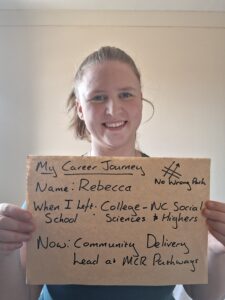 My Career Journey
No Wrong Path
Name: Rebecca
When I Left School : College - NC Social Sciences & Highers
Now: Community Delivery
Lead at MCR Pathways